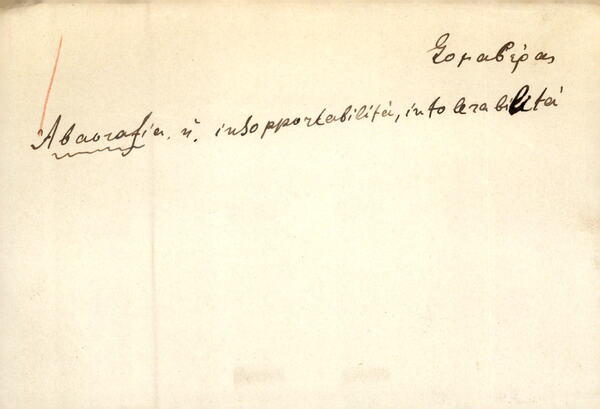 Σομαβέρας
Ἀβασταξία. ἡ. insopportabilitá, intolerabilitá